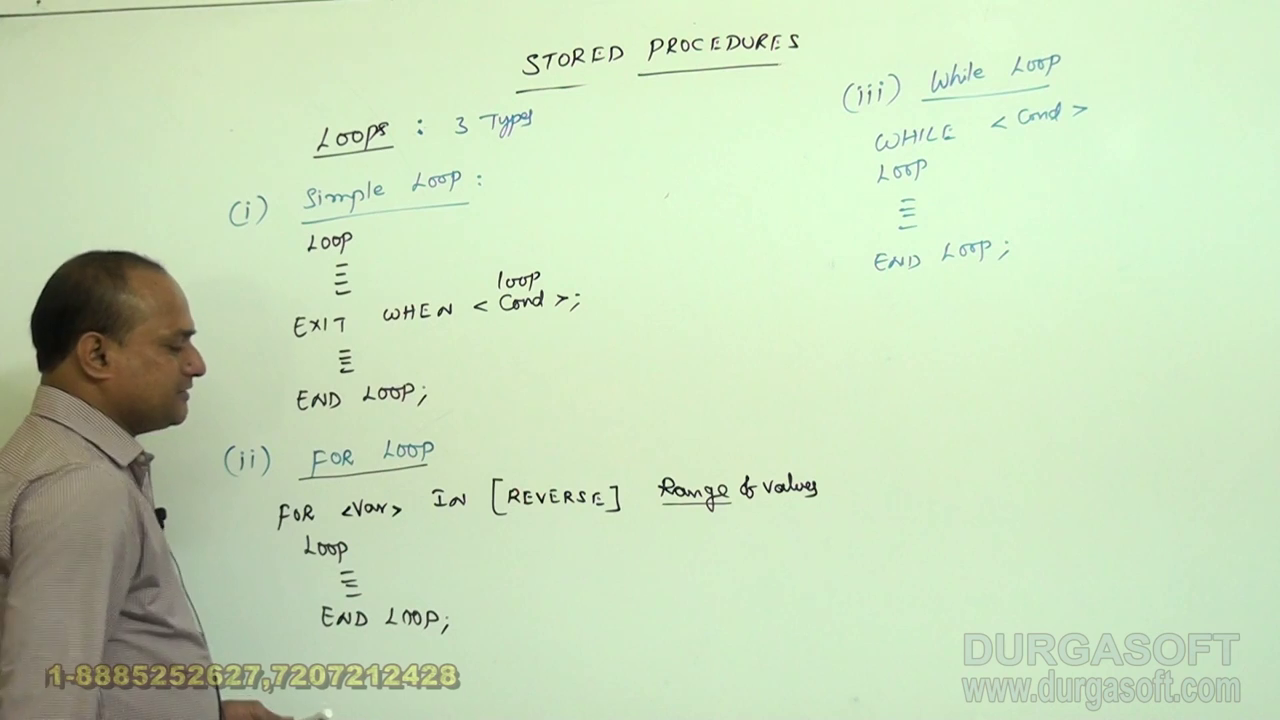 STORED PROCEDURES
LOOPS : 3 Types
(i) Simple LOOP :
LOOP
loop
EXIT WHEN < Cond > ;
END LOOP ;
(ii) FOR LOOP
FOR <Var> IN [REVERSE] Range of values
LOOP
END LOOP ;
(iii) While LOOP
WHILE < Cond >
LOOP
END LOOP ;
1-8885252627,7207212428
DURGASOFT
www.durgasoft.com